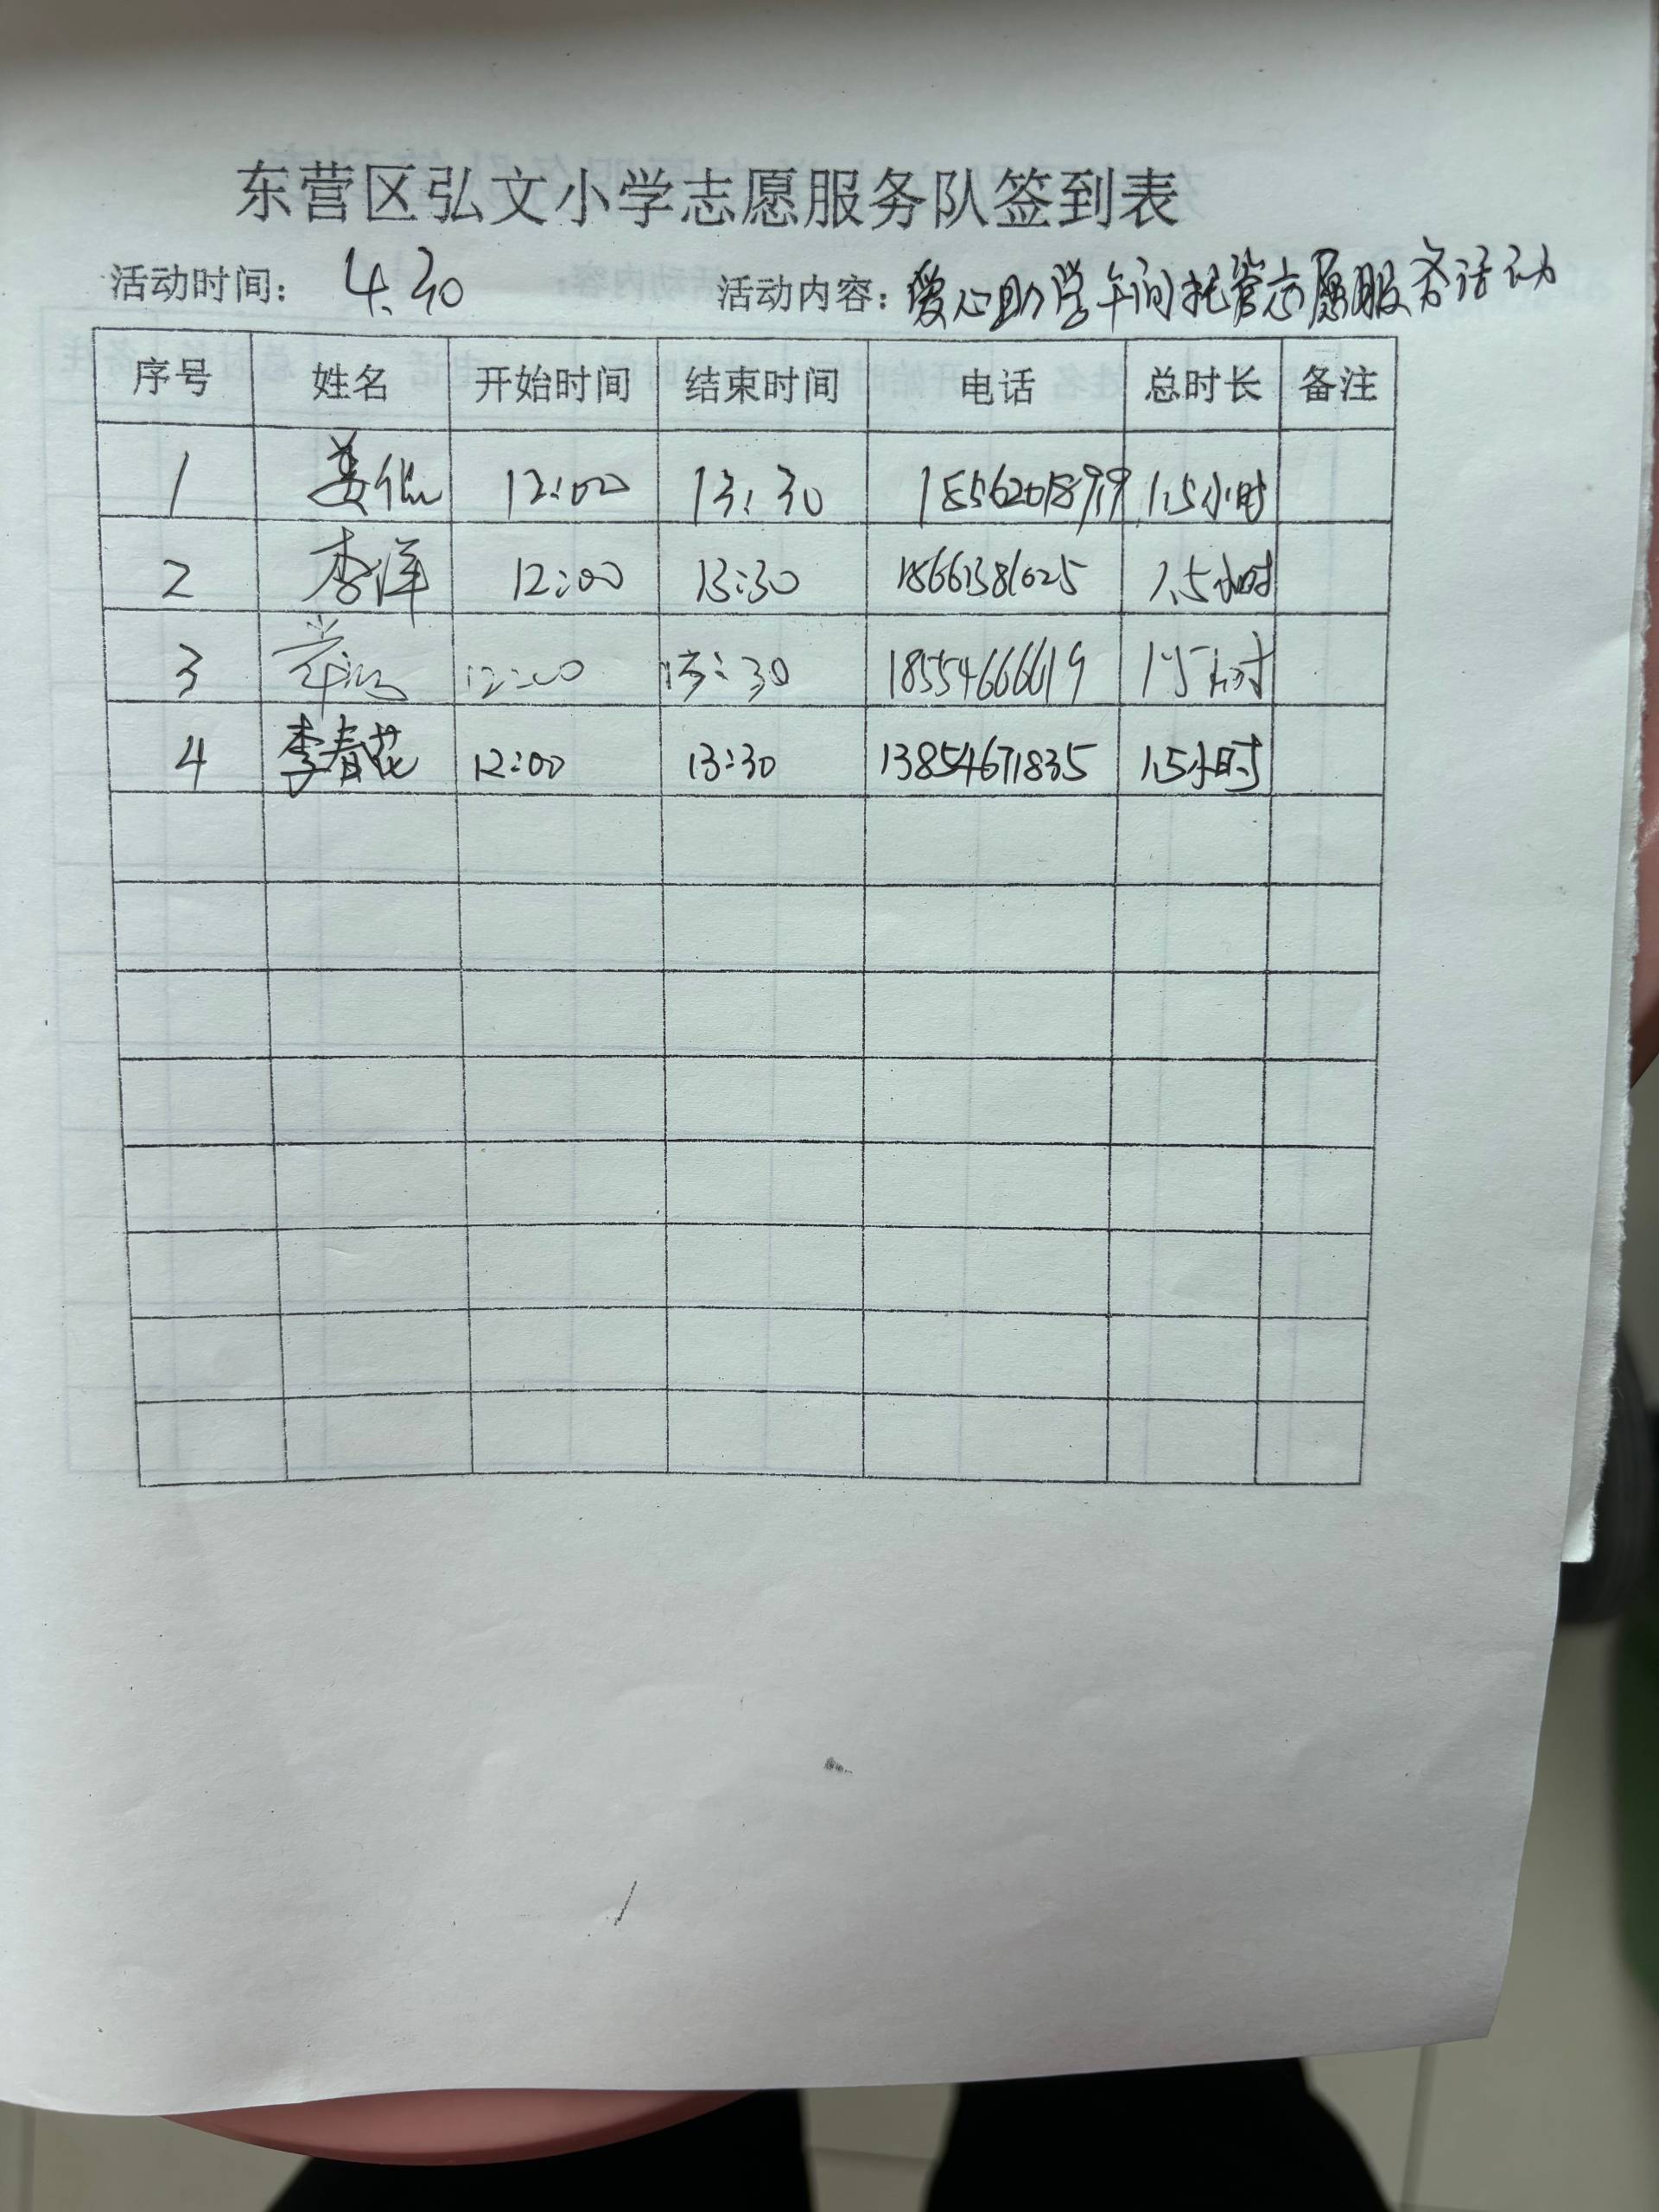 东营区弘文小学志愿服务队签到表
活动时间: 4.30 活动内容: 爱心助学午间托管志愿服务活动
序号 姓名 开始时间 结束时间 电话 总时长 备注
1 姜 12:00 13:30 18562018919 1.5小时
2 李洋 12:00 13:30 1.5小时
3 12:00 13:30 18554666619 1.5小时
4 李春花 12:00 13:30 13854671835 1.5小时